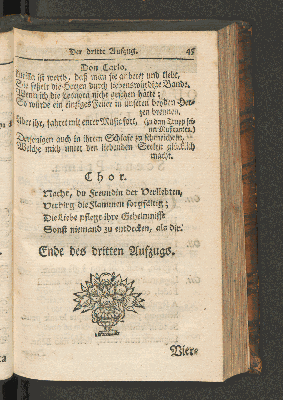 Der dritte Aufzug. 45
Don Carlo.
ist werth, daß man sie anbetet und liebt,
Sie fesselt die Herzen durch liebenswürdige Bande.
Wenn ich die Leonora nicht gesehen hätte;
So würde ein einziges Feuer in unseren beyden Her-
zen brennen.
Aber ihr, fahret mit eurer Music fort,
Denjenigen auch in ihrem Schlafe zu schmeicheln,
Welche mich unter den liebenden Seelen glücklich
macht.
Chor.
Nacht, du Freundin der Verliebten,
Verbirg die Flammen sorgfältig;
Die Liebe pflegt ihre Geheimnisse
Sonst niemand zu entdecken, als dir.
Ende des dritten Aufzugs.
Vier-